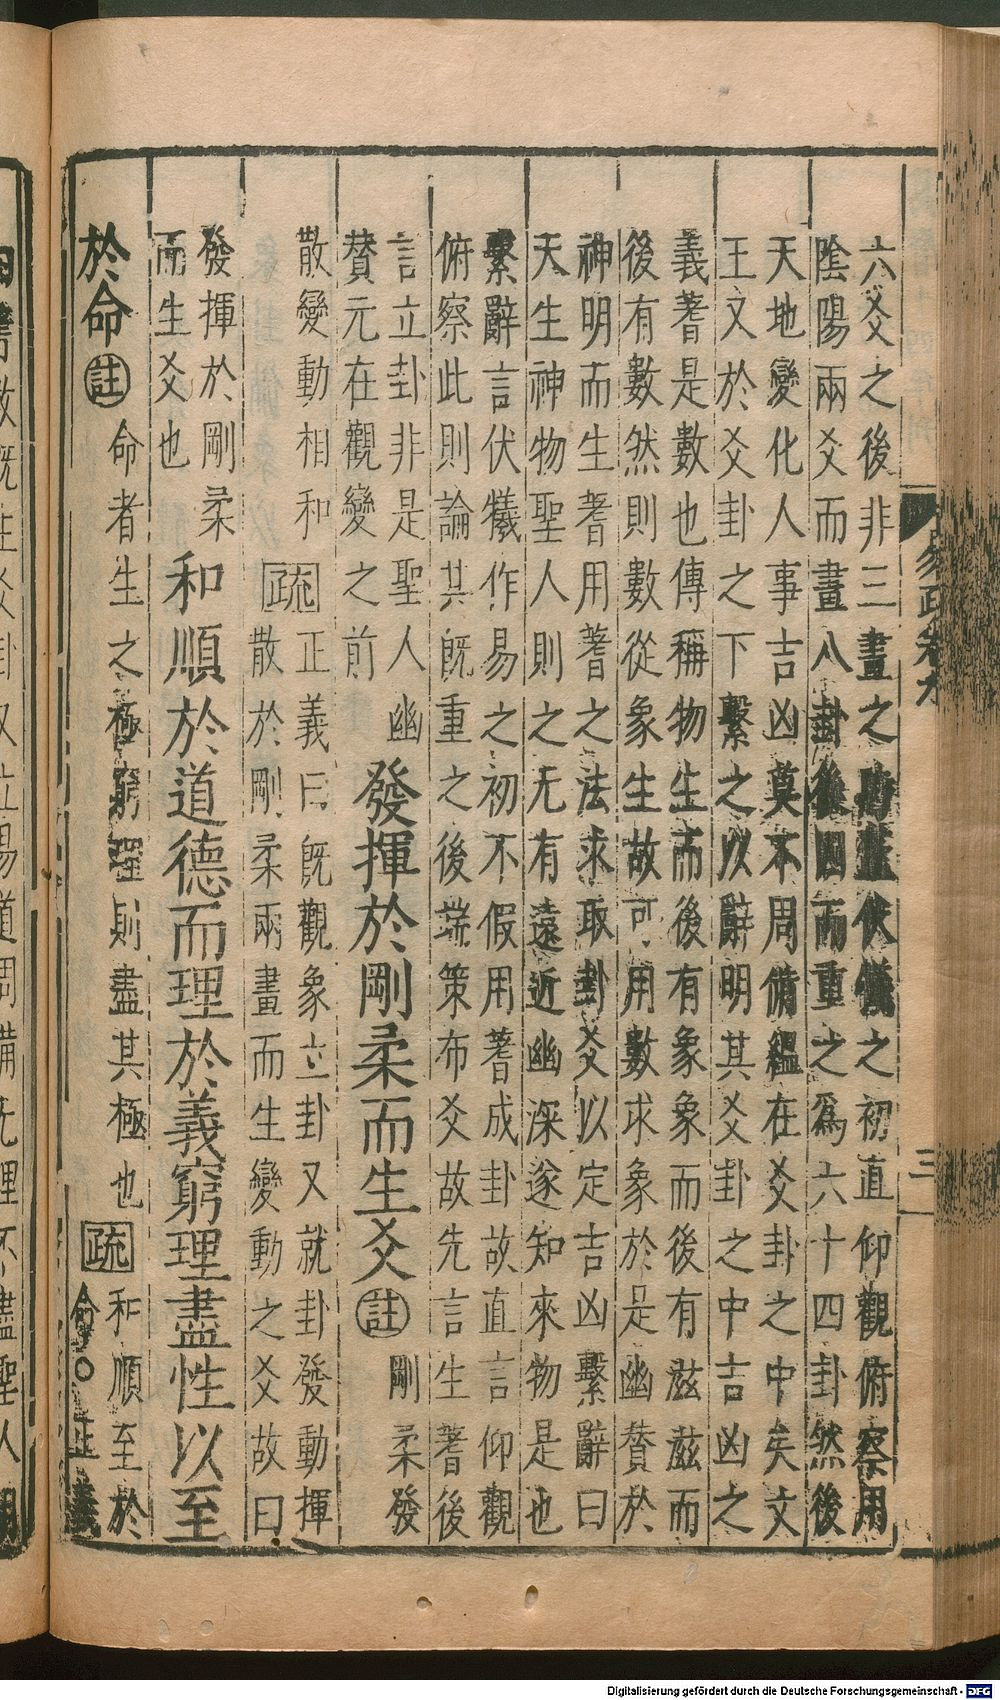 易疏卷九
三
六爻之後非三畫之時蓋伏犧之初直仰觀俯察用
陰陽兩爻而畫八卦後因而重之爲六十四卦然後
天地變化人事吉凶莫不周備縕在爻卦之中矣文
王又於爻卦之下繫之以辭明其爻卦之中吉凶之
義蓍是數也傳稱物生而後有象象而後有滋滋而
後有數然則數從象生故可用數求象於是幽贊於
神明而生蓍用蓍之法求取卦爻以定吉凶繫辭曰
天生神物聖人則之无有遠近幽深遂知來物是也
繫辭言伏犧作易之初不假用蓍成卦故直言仰觀
俯察此則論其既重之後端策布爻故先言生蓍後
言立卦非是聖人幽
贊元在觀變之前
發揮於剛柔而生爻註剛柔發
散變動相和疏正義曰既觀象立卦又就卦發動揮
散於剛柔兩畫而生變動之爻故曰
發揮於剛柔
而生爻也
和順於道德而理於義窮理盡性以至
於命註命者生之極窮理則盡其極也疏和順至於
命○正義
數既生爻卦又立易道周備无理不盡聖人用
Digitalisierung gefördert durch die Deutsche Forschungsgemeinschaft - DFG